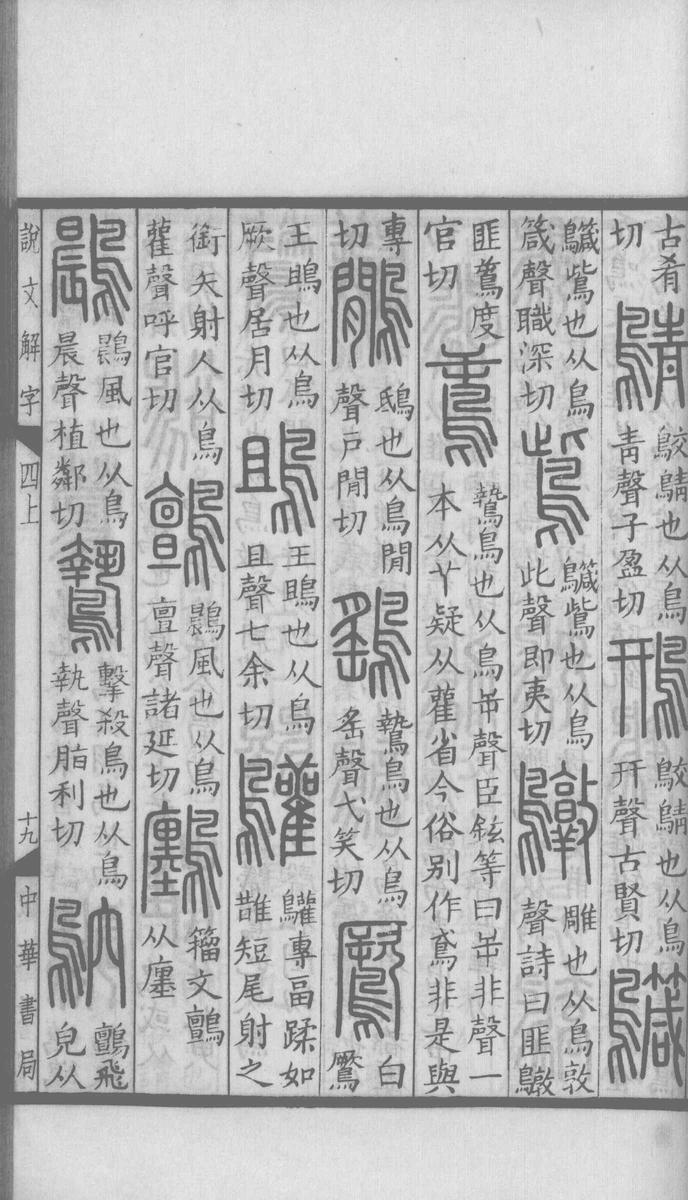 古肴切鶄鵁鶄也从鳥青聲子盈切鳽鵁鶄也从鳥幵聲古賢切鱵
鱵鴜也从鳥箴聲職深切鴜鱵鴜也从鳥此聲即夷切鷻雕也从鳥敦聲詩曰匪鷻
匪䳒度官切䳒鷙鳥也从鳥屰聲臣鉉等曰屰非聲一本从𦫳疑从雚省今俗別作鳶非是與
專切鷴鴟也从鳥閒聲戶閒切鷂鷙鳥也从鳥䍃聲弋笑切鷢白鷢
王鴡也从鳥厥聲居月切鴡王鴡也从鳥且聲七余切鸛鸛專畐蹂如䧿短尾射之
銜矢射人从鳥雚聲呼官切鸇鷐風也从鳥亶聲諸延切籀文鸇从廛
鷐鷐風也从鳥晨聲植鄰切鷙擊殺鳥也从鳥執聲脂利切鴥鸇飛皃从
說文解字 四上 十九 中華書局